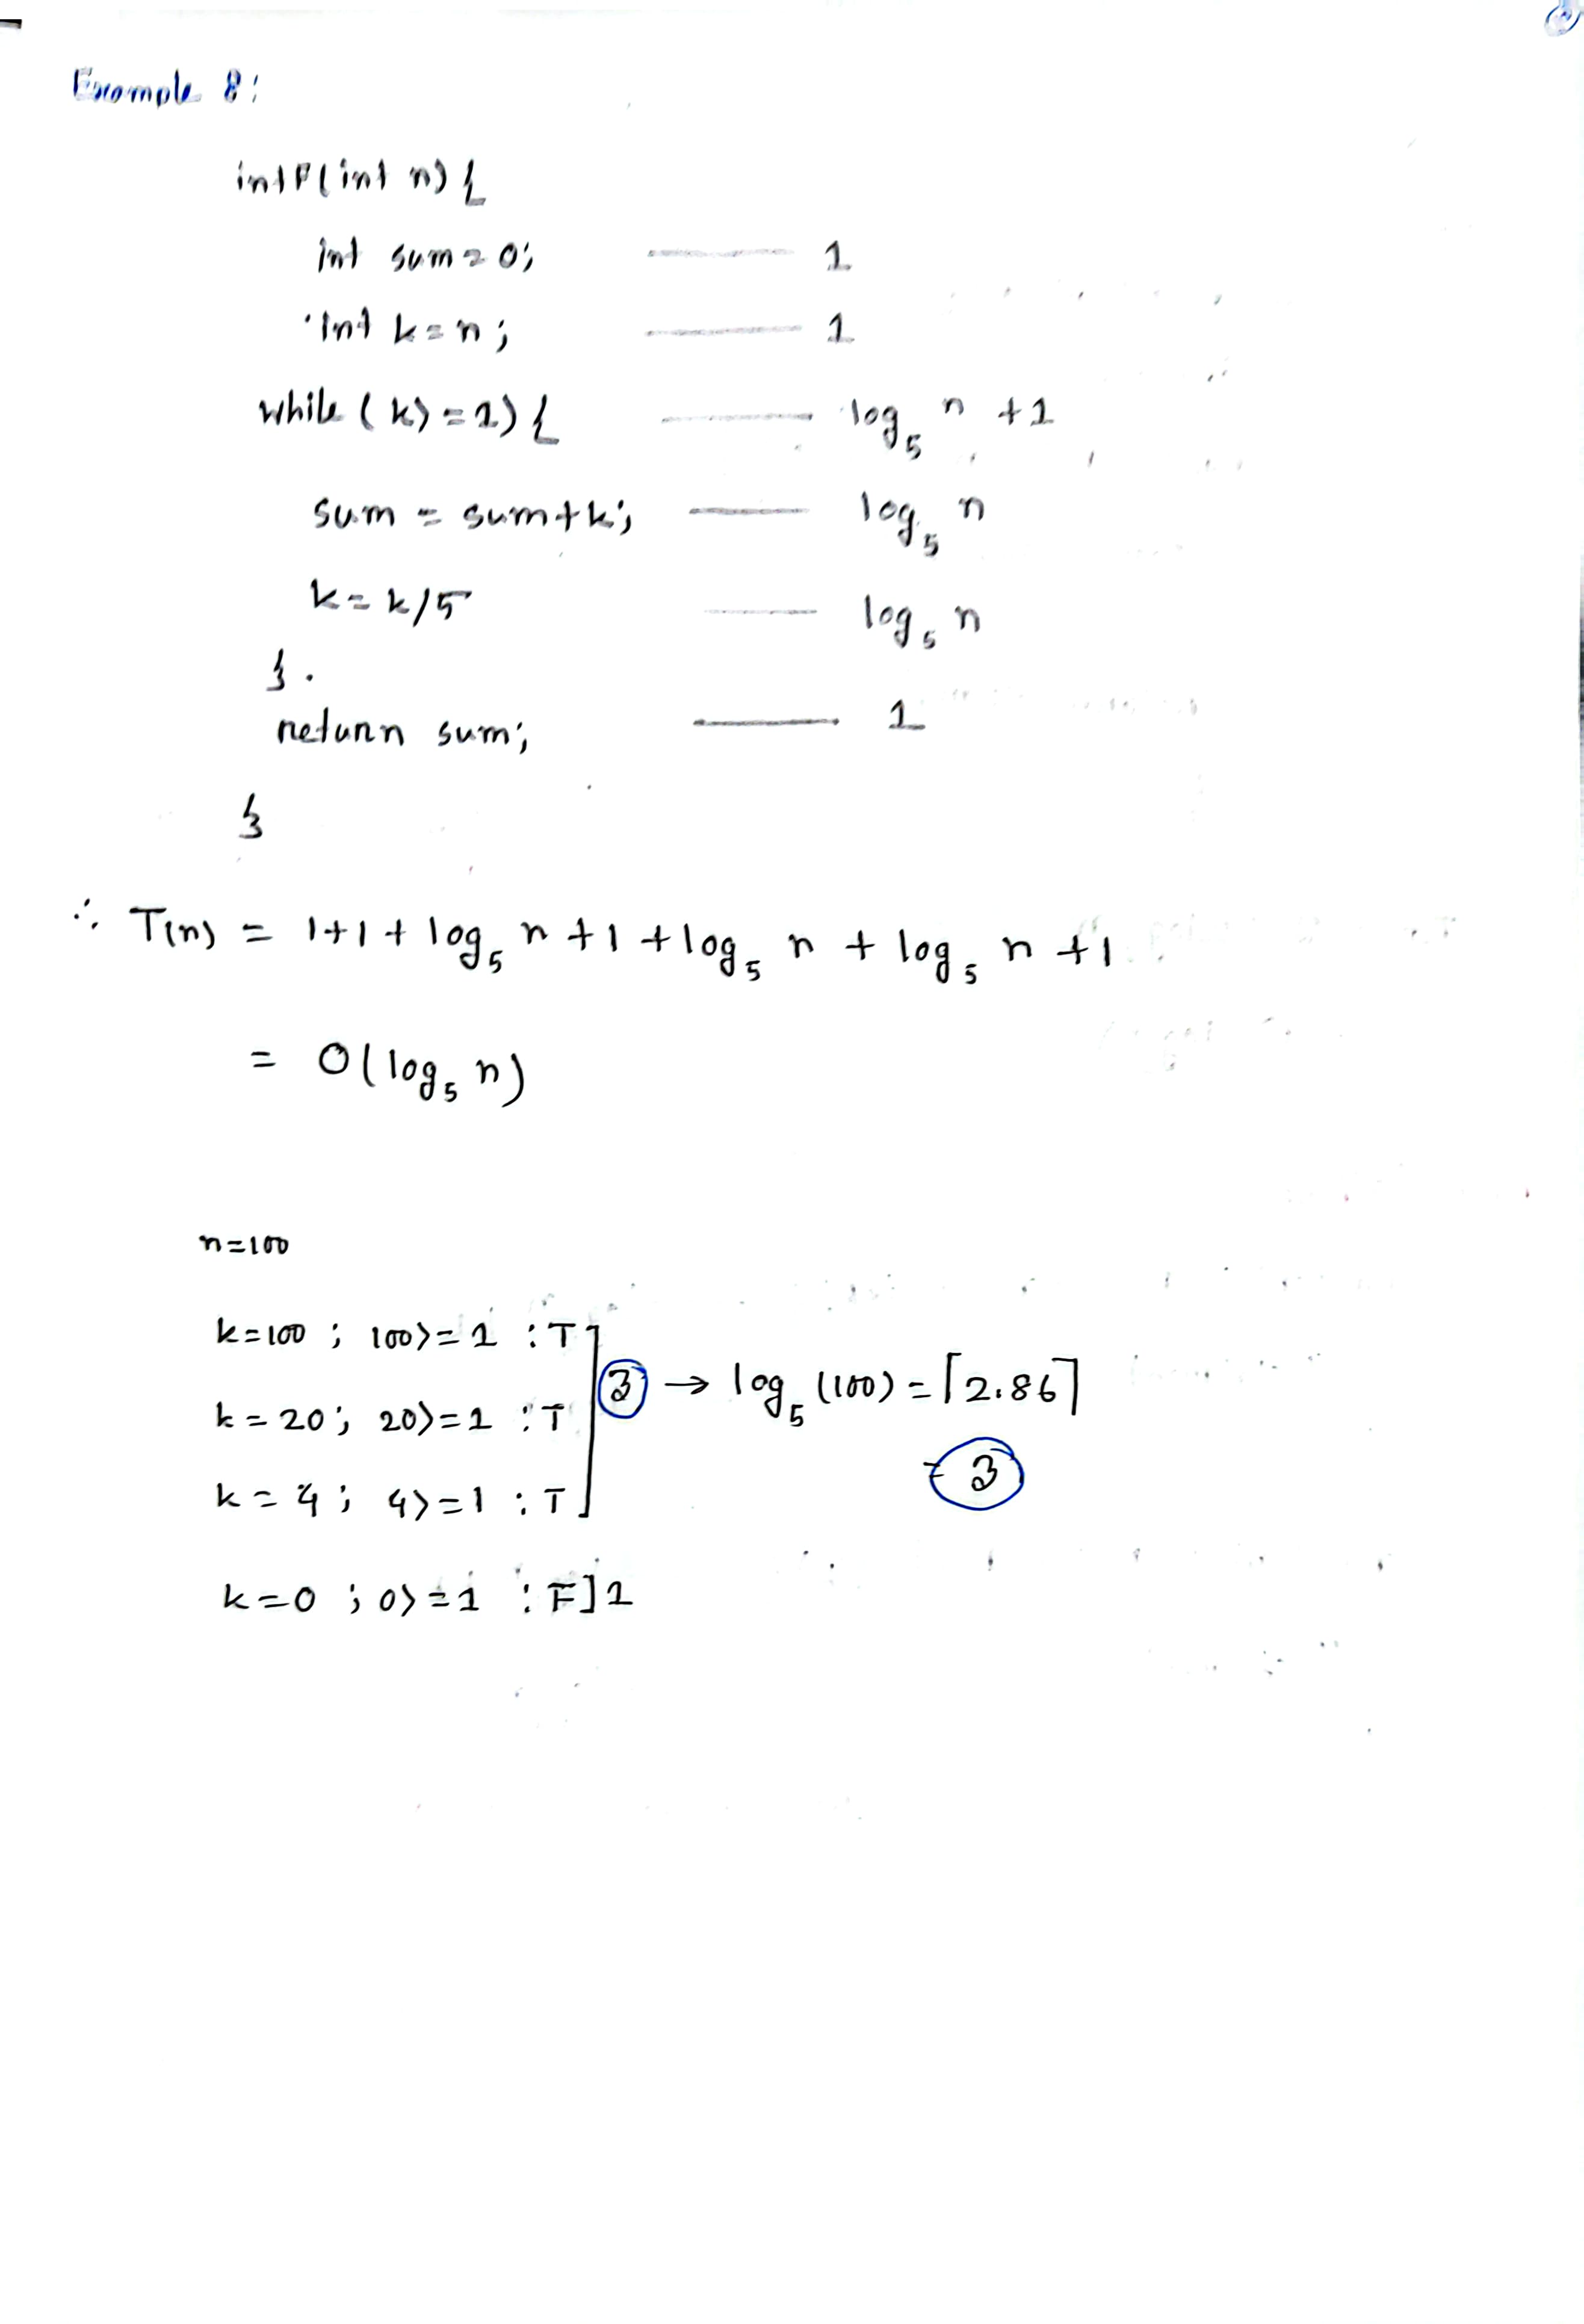 Example 8:
int F(int n) {
int sum = 0; —— 1
int k = n; —— 1
while (k>=1) { —— log₅ n +1
sum = sum+k; —— log₅ n
k = k/5 —— log₅ n
} .
return sum; —— 1
}
∴ T(n) = 1+1+ log₅ n +1 + log₅ n + log₅ n +1
= O(log₅ n)
n=100
k=100 ; 100>=1 : T
k=20 ; 20>=1 : T ] 3 → log₅ (100) = ⌈2.86⌉
k=4 ; 4>=1 : T = 3
k=0 ; 0>=1 : F] 1